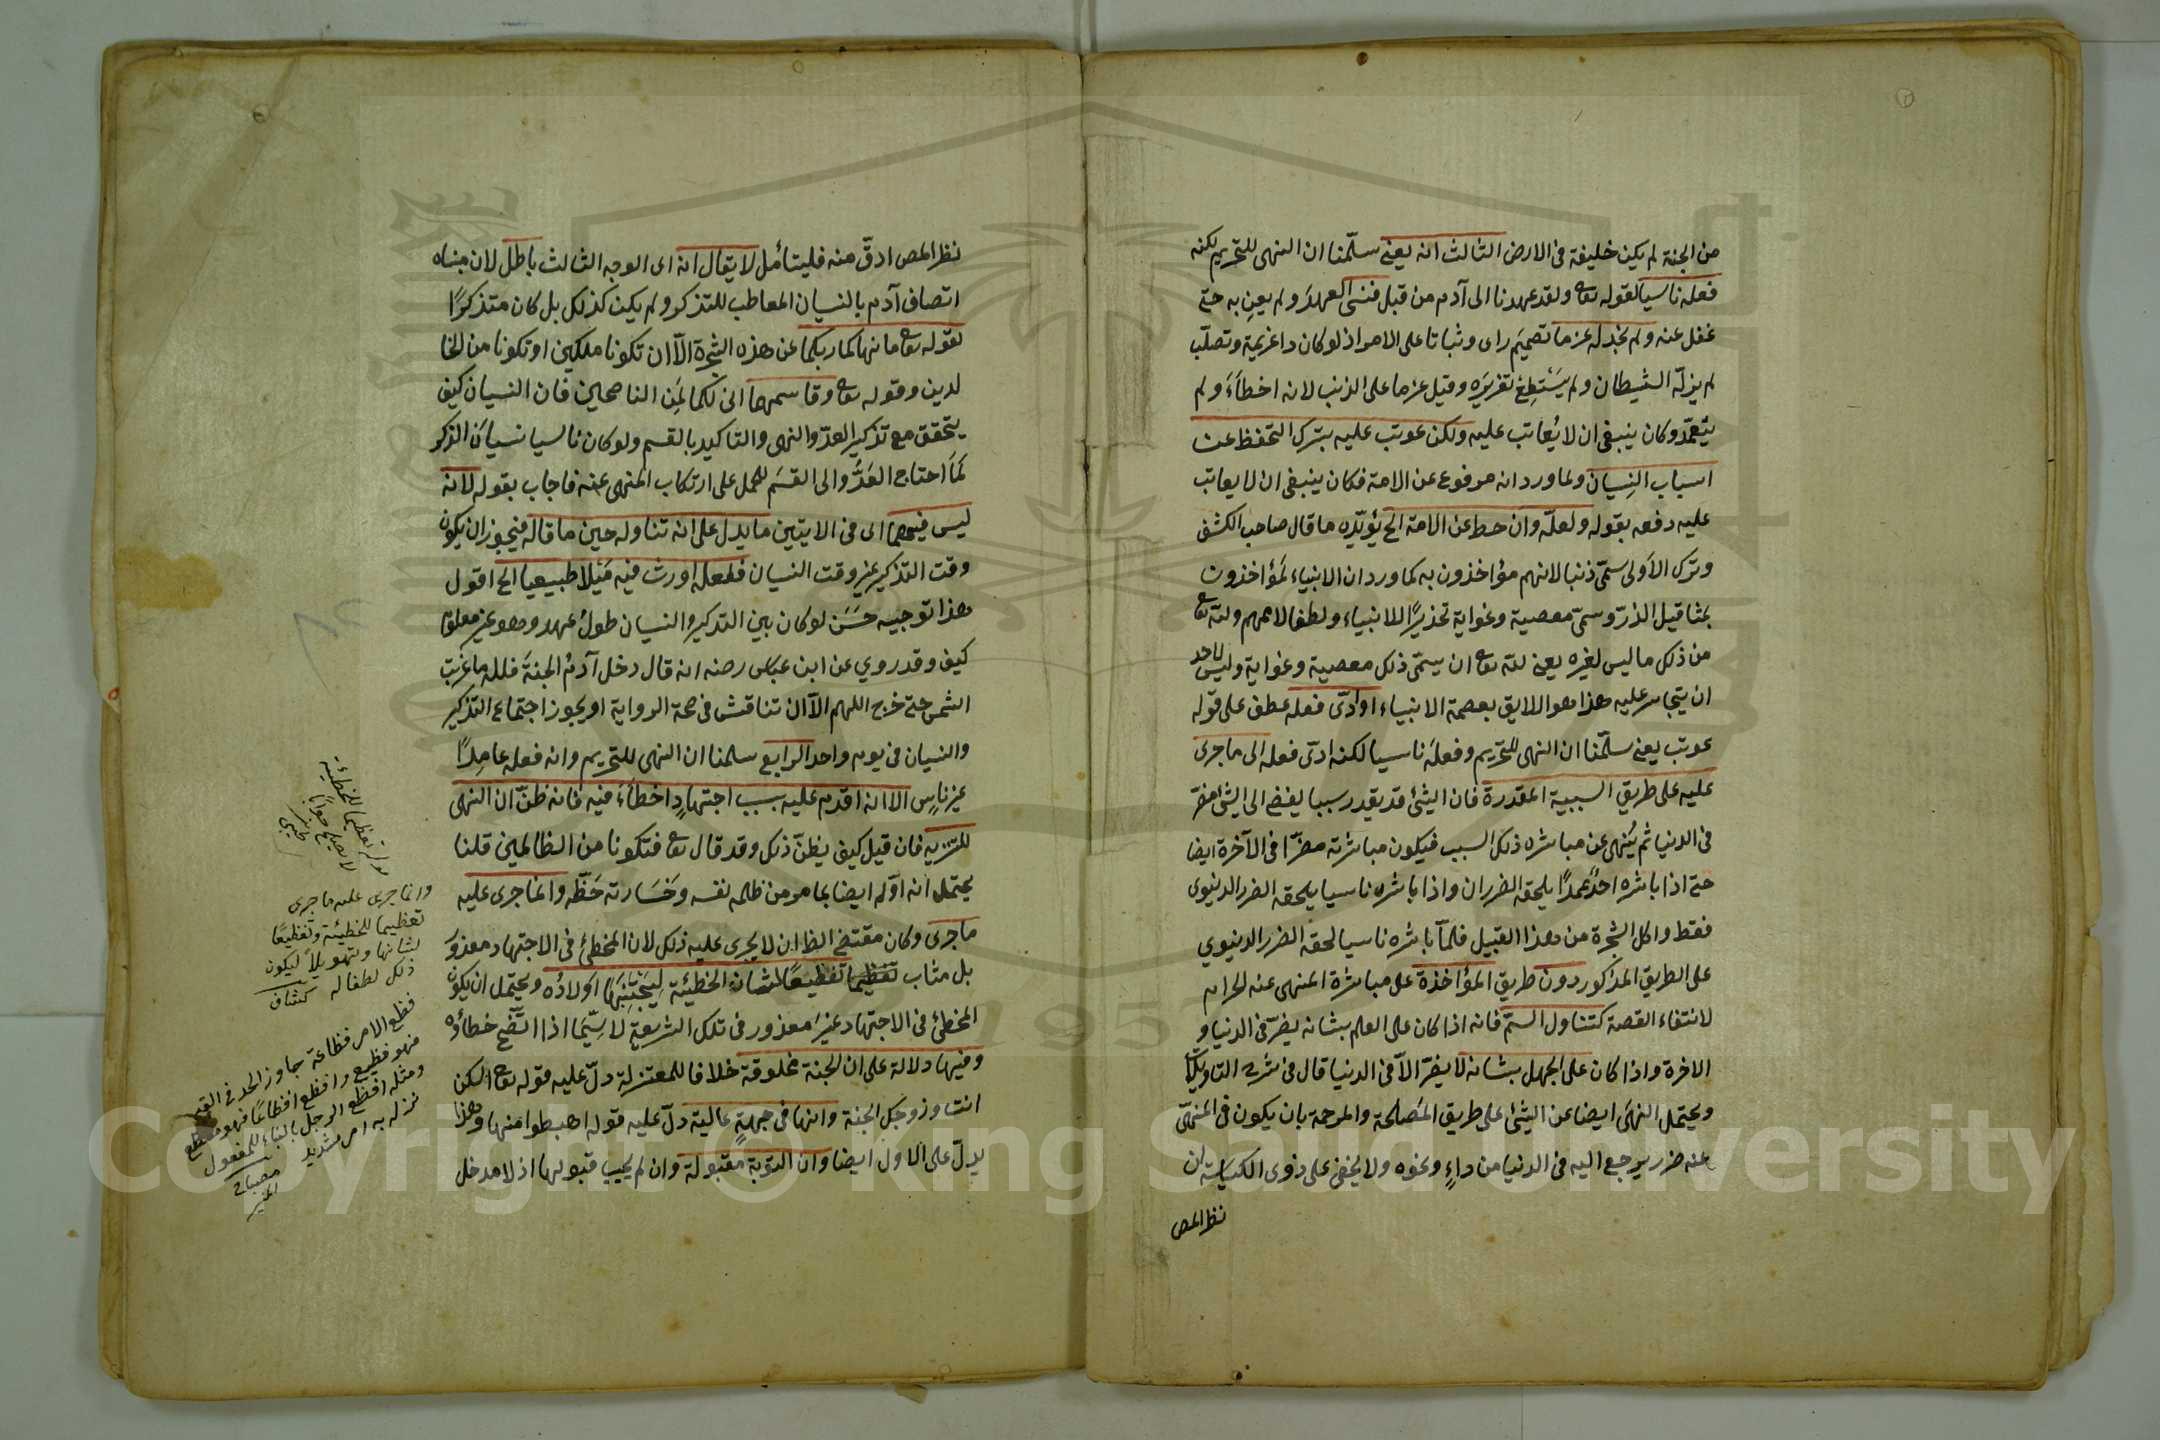 من الجنة لم يكن خليفة فى الارض الثالث انه يعنى سلّمنا ان النهى للتحريم لكنه
فعله ناسيا لقوله تع ولقد عهدنا الى آدم من قبل فنسى العهدَ ولم يعنِ به حتى
غفل عنه ولم نجد له عزما تصميمَ راى وثباتا على الامر اذ لو كان ذا عزيمة وتصلّب
لم يزلّه الشيطان ولم يَسْتَطِعْ تغريرَه وقيل عزما على الذنب لانه اخطأَ ولم
يتعمّد وكان ينبغى ان لا يُعاتب عليه ولكن عوتب عليه بترك التحفظ عن
اسباب النِسيان ولما ورد انه مرفوع عن الامة فكان ينبغى ان لا يعاتب
عليه دفعه بقوله ولعلّه وان حط عن الامة الخ يؤيّده ما قال صاحب الكشف
وترك الاَولى سمّى ذنبا لانهم مؤاخذون به كما ورد ان الانبياء لَمُؤاخذون
بمثاقيل الذرّ وسمّى معصية وغواية تحذيرًا للانبياء ولطفا لاممهم ولله تع
من ذلك ما ليس لغيره يعنى لله تع ان يسمّى ذلك معصية وغواية وليس لاحد
ان يتجاسر عليه هذا هو الاليق بعصمة الانبياء او ادّى فعله عطف على قوله
عوتب يعنى سلّمنا ان النهى للتحريم وفعلَه ناسيا لكنه ادى فعله الى ما جرى
عليه على طريق السببية المقدرة فان الشئ قد يقدر سببا يفضى الى الشئ مضر
فى الدنيا ثم يُنهى عن مباشره ذلك السبب فيكون مباشرته مضرّا فى الآخرة ايضا
حتى اذا باشره احدٌ عمدًا يلحقه الضرران واذا باشره ناسيا يلحقه الضرر الدنيوى
فقط واكل الشجرة من هذا القبيل فلمّا باشره ناسيا لحقه الضرر الدنيوي
على الطريق المذكور دون طريق المؤاخذة على مباشرة المنهى عنه الحرام
لانتفاء القصة كتناول السمّ فانه اذا كان على العلم بشانه يضرّ فى الدنيا و
الاخرة واذا كان على الجهل بشانه لا يضرّ الاّ فى الدنيا قال فى شرح التاويلات
ويحتمل النهىَ ايضا عن الشئ على طريق المَصلحة والمرحمة بان يكون فى المنهىّ
عنه ضرر يرجع اليه فى الدنيا من داءٍ ونحوه ولا يخفى على ذوى الكياسة ان
نظر المص
نظر المص ادقّ منه فليتأمل لا يقال انه اى الوجه الثالث باطل لان مبناه
اتصاف آدم بالنسيان المعاطب للتذكر ولم يكن كذلك بل كان متذكرًا
لقوله تع ما نهاكما ربكما عن هذه الشجرة الاّ ان تكونا ملكين او تكونا من الخا
لدين وقوله تع وقاسمهما انى لكما لَمِن الناصحين فان النسيان كيف
يتحقق مع تذكير العدّو النهى والتاكيد بالقسم ولو كان ناسيا نسيانَ الذكر
لَمَا احتاج العَدُّو الى القسَم للحمل على ارتكاب المنهى عنه فاجاب بقوله لانه
ليس فيهما اى فى الايتين ما يدل على انه تناوله حين ما قاله فيجوز ان يكون
وقت التذكير غير وقت النسيان فلعله اورث فيه مَيْلا طبيعيا الخ اقول
هذا توجيه حَسَن لو كان بين التذكير والنسيان طولُ عهد وهو غير معلوم
كيف وقد روي عن ابن عباس رضه انه قال دخل آدمُ الجنةَ فلله ما غربت
الشمس حتى خرج اللهم الاّ ان تناقش فى صحة الرواية او يجوز اجتماع التذكير
والنسيان فى يوم واحد الرابع سلمنا ان النهى للتحريم وانه فعله عامِدًا
غير ناسٍ الا انه اقدم عليه بسبب اجتهادٍ اخطأَ فيه فانه ظنّ ان النهى
للتنزيه فان قيل كيف يظنّ ذلك وقد قال تع فتكونا من الظالمين قلنا
يحتمل انه اوّله ايضا بما هو من ظلمه نفسه وخَسَارته حَظّه وانما جرى عليه
ما جرى وكان مقتضى الظ ان لا يجرى عليه ذلك لان المخطئ فى الاجتهاد معذوَ
بل مثاب تعظيما تفظيعًا لشان الخطيئة لِيَجْتَنِبَها اولادُه ويحتمل ان يكون
المخطئ فى الاجتهاد غيرَ معذور فى تلك الشريعةِ لا سيّما اذا اتّضح خطأوه
وفيها دلالة على ان الجنة مخلوقة خلافا للمعتزلة دلّ عليه قوله تع اسكن
انت وزوجك الجنة وانها فى جهةٍ عالية دلّ عليه قوله اهبطوا منها وهذا
يدلّ على الاول ايضا وان التوبة مقبولة وان لم يجب قبولها اذ لا مدخل
تعظيما للخطيئة
لا يصلح جوابًا
وانما جرى عليه ما جرى
تعظيما للخطيئة وتفظيعًا
لشانها وتهويلاً ليكون
ذلك لطفا له كشاف
فظع الامر فظاعة جاوز الحد فى القبح
فهو فظيع وافظع افظاعًا فهو مفظع
ومثله افظع الرجل بالبناء للمفعول
نزل به امر شديد مصباح
المنير
Copyright © King Saud University